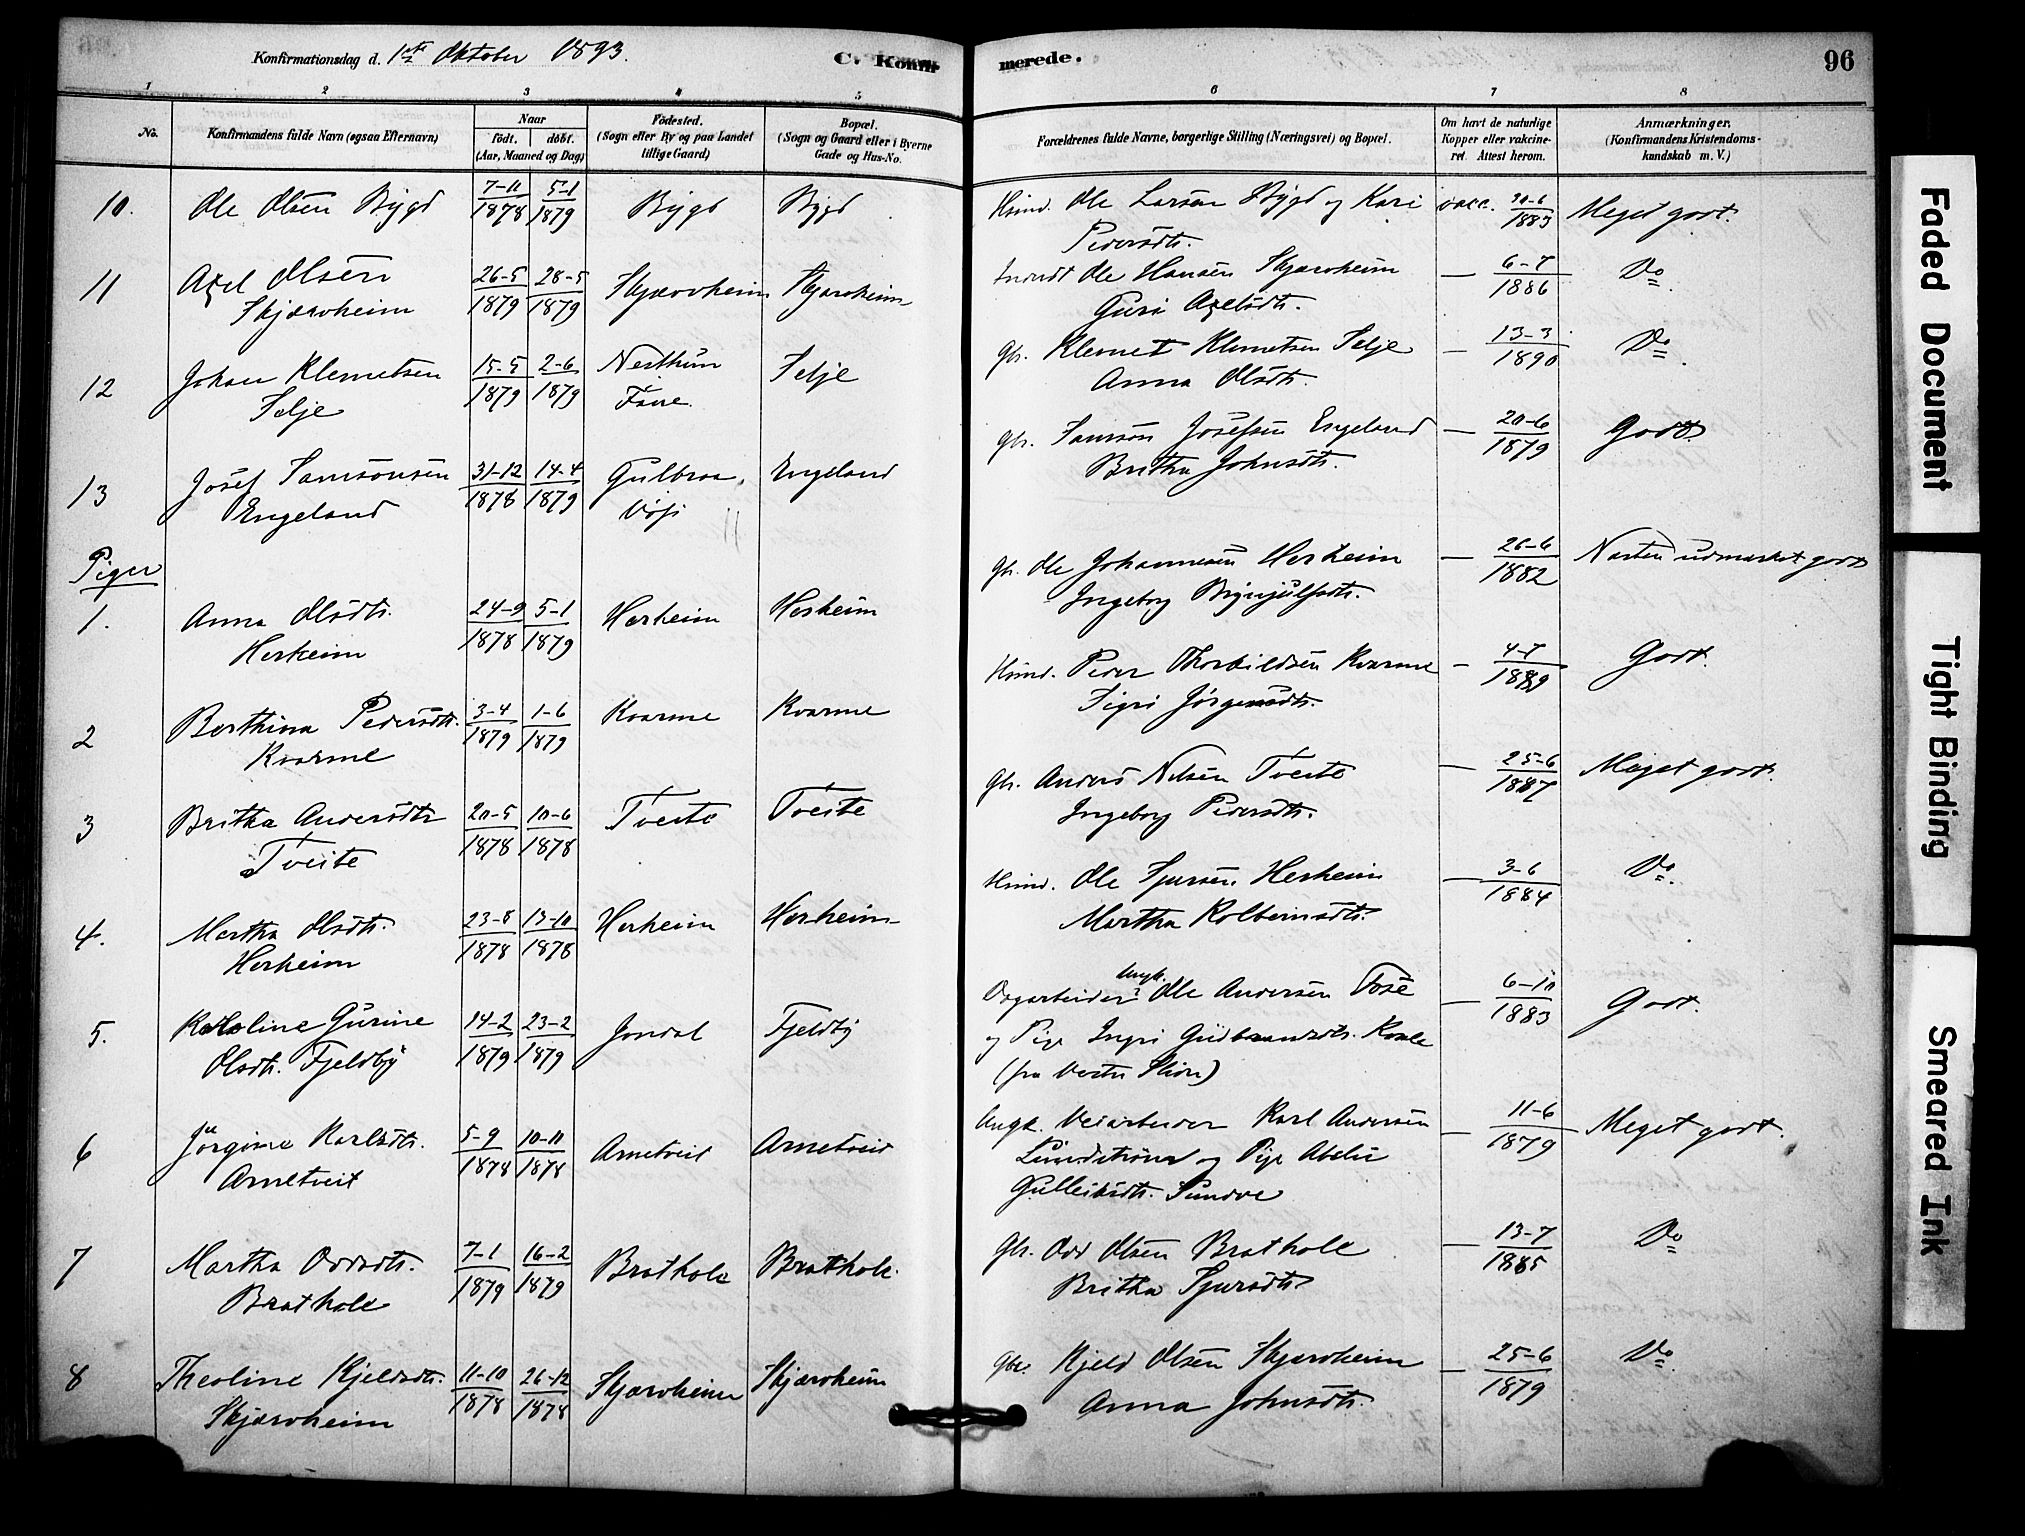 Konfirmationsdag d. 1ste Oktober 1893.
C. Konfirmerede.
96
1 2 3 4 5 6 7 8
No.
Konfirmandens fulde Navn (ogsaa Efternavn)
Naar
födt. döbt.
(Aar, Maaned og Dag)
Födested.
(Sogn eller By og paa Landet
tillige Gaard)
Bopæl.
(Sogn og Gaard eller i Byerne
Gade og Hus-No.
Forældrenes fulde Navne, borgerlige Stilling (Næringsvei) og Bopæl.
Om havt de naturlige
Kopper eller vakcine-
ret. Attest herom.
Anmærkninger.
(Konfirmandens Kristendoms-
kundskab m. V.)
10. Ole Olsen Bygd 7-11 1878 5-1 1879 Bygd Bygd Huusmd. Ole Larsen Bygd og Kari vacc. 1883 Meget godt.
Pedersdtr.
11 Axel Olsen 26-5 1879 28-5 1879 Skjærvheim Skjærvheim Ole Hansen Skjærvheim — 6-7 1886 Do
Skjærvheim Guri Axelsdtr.
12 Johan Klemetsen 15-5 1879 2-6 1879 Nesthun Selje Gbr. Klemet Klemetsen Selje — 13-3 1890 Do
Selje Fane Anna Olsdtr.
13 Josef Samsonsen 31-12 1878 14-4 1879 Gulbraa, Engeland Gbr. Samson Josefsen Engeland — 20-6 1879 Godt
Engeland Britha Johnsdtr.
Piger
1. Anna Olsdtr. 24-9 1878 5-1 1879 Herheim Herheim Gbr. Ole Johannesen Herheim — 26-6 1882 Næsten udmærket godt
Herheim Ingeborg Brynjulfsdtr.
2 Berthina Pedersdtr. 3-4 1879 1-6 1879 Kvarme Kvarme Huusmd. Peder Thorkildsen Kvarme — 4-7 1889 Godt.
Kvarme Sigri Jörgensdtr.
3 Britha Andersdtr 20-5 1878 10-6 1878 Tveite Tveite Gbr. Anders Nilsen Tveite — 25-6 1887 Meget godt.
Tveite Ingeborg Pedersdtr.
4. Martha Olsdtr. 23-8 1878 13-10 1878 Herheim Herheim Huusmd. Ole Sjursen Herheim — 3-6 1884 Do.
Herheim Martha Kolbeinsdtr.
5. Karoline Gurine 14-2 1879 23-2 1879 Jondal Fjeldby Ungk. Ole Andersen Tose — 6-10 1883 Godt.
Olsdtr. Fjeldby og Pige Ingri Gudbrandsdtr.
(fra Vestre Slidre)
6 Jörgine Karlsdtr. 5-9 1878 10-11 1878 Arnetveit Arnetveit Ungk. Veiarbeider Karl Andersen — 11-6 1879 Meget godt.
Arnetveit Lundström og Pige Abelie
Gulleiksdtr. Sundve
7 Martha Oddsdtr. 7-1 1879 16-2 1879 Brathole Brathole. Gbr. Odd Olsen Brathole — 13-7 1885 Do
Brathole Britha Sjursdtr.
8 Theoline Kjeldsdtr. 11-10 1878 26-12 1878 Skjærvheim Skjærvheim Gbr. Kjeld Olsen Skjærvheim — 25-6 1879 Do
Skjærvheim Anna Johnsdtr.
Faded Document
Tight Binding
Smeared Ink